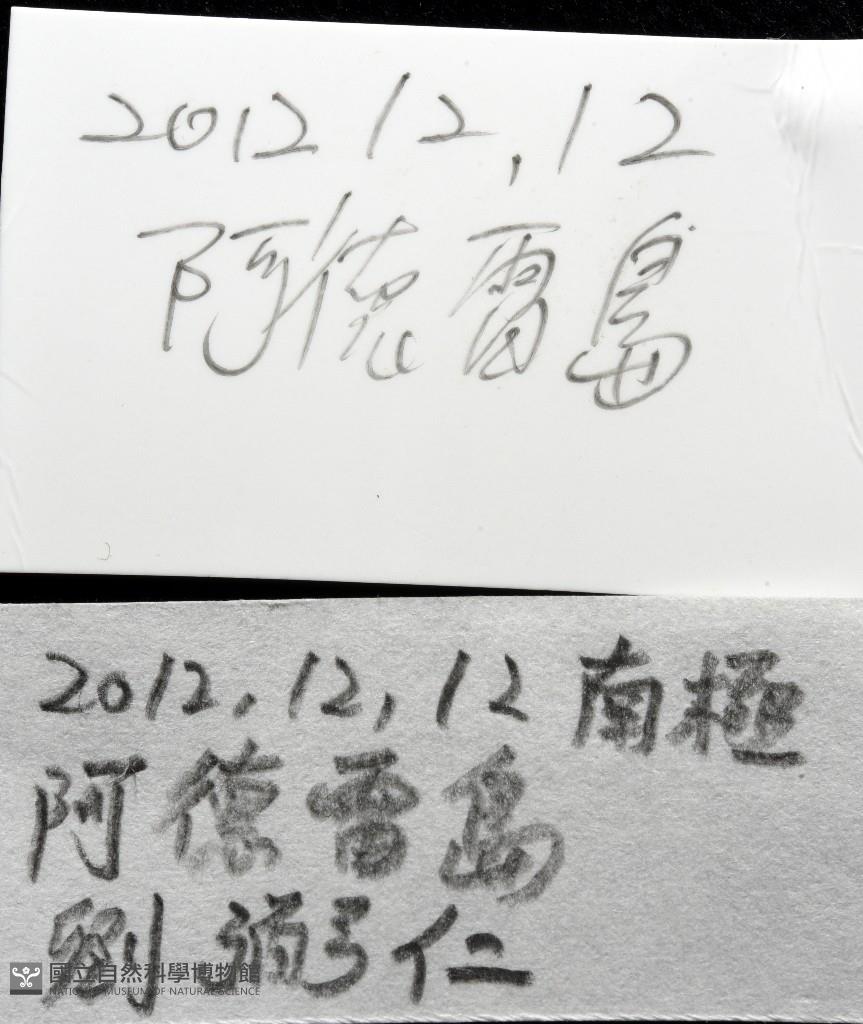 2012 12,12
阿德雷島
2012,12,12 南極
阿德雷島
劉弼仁
國立自然科學博物館
NATIONAL MUSEUM OF NATURAL SCIENCE